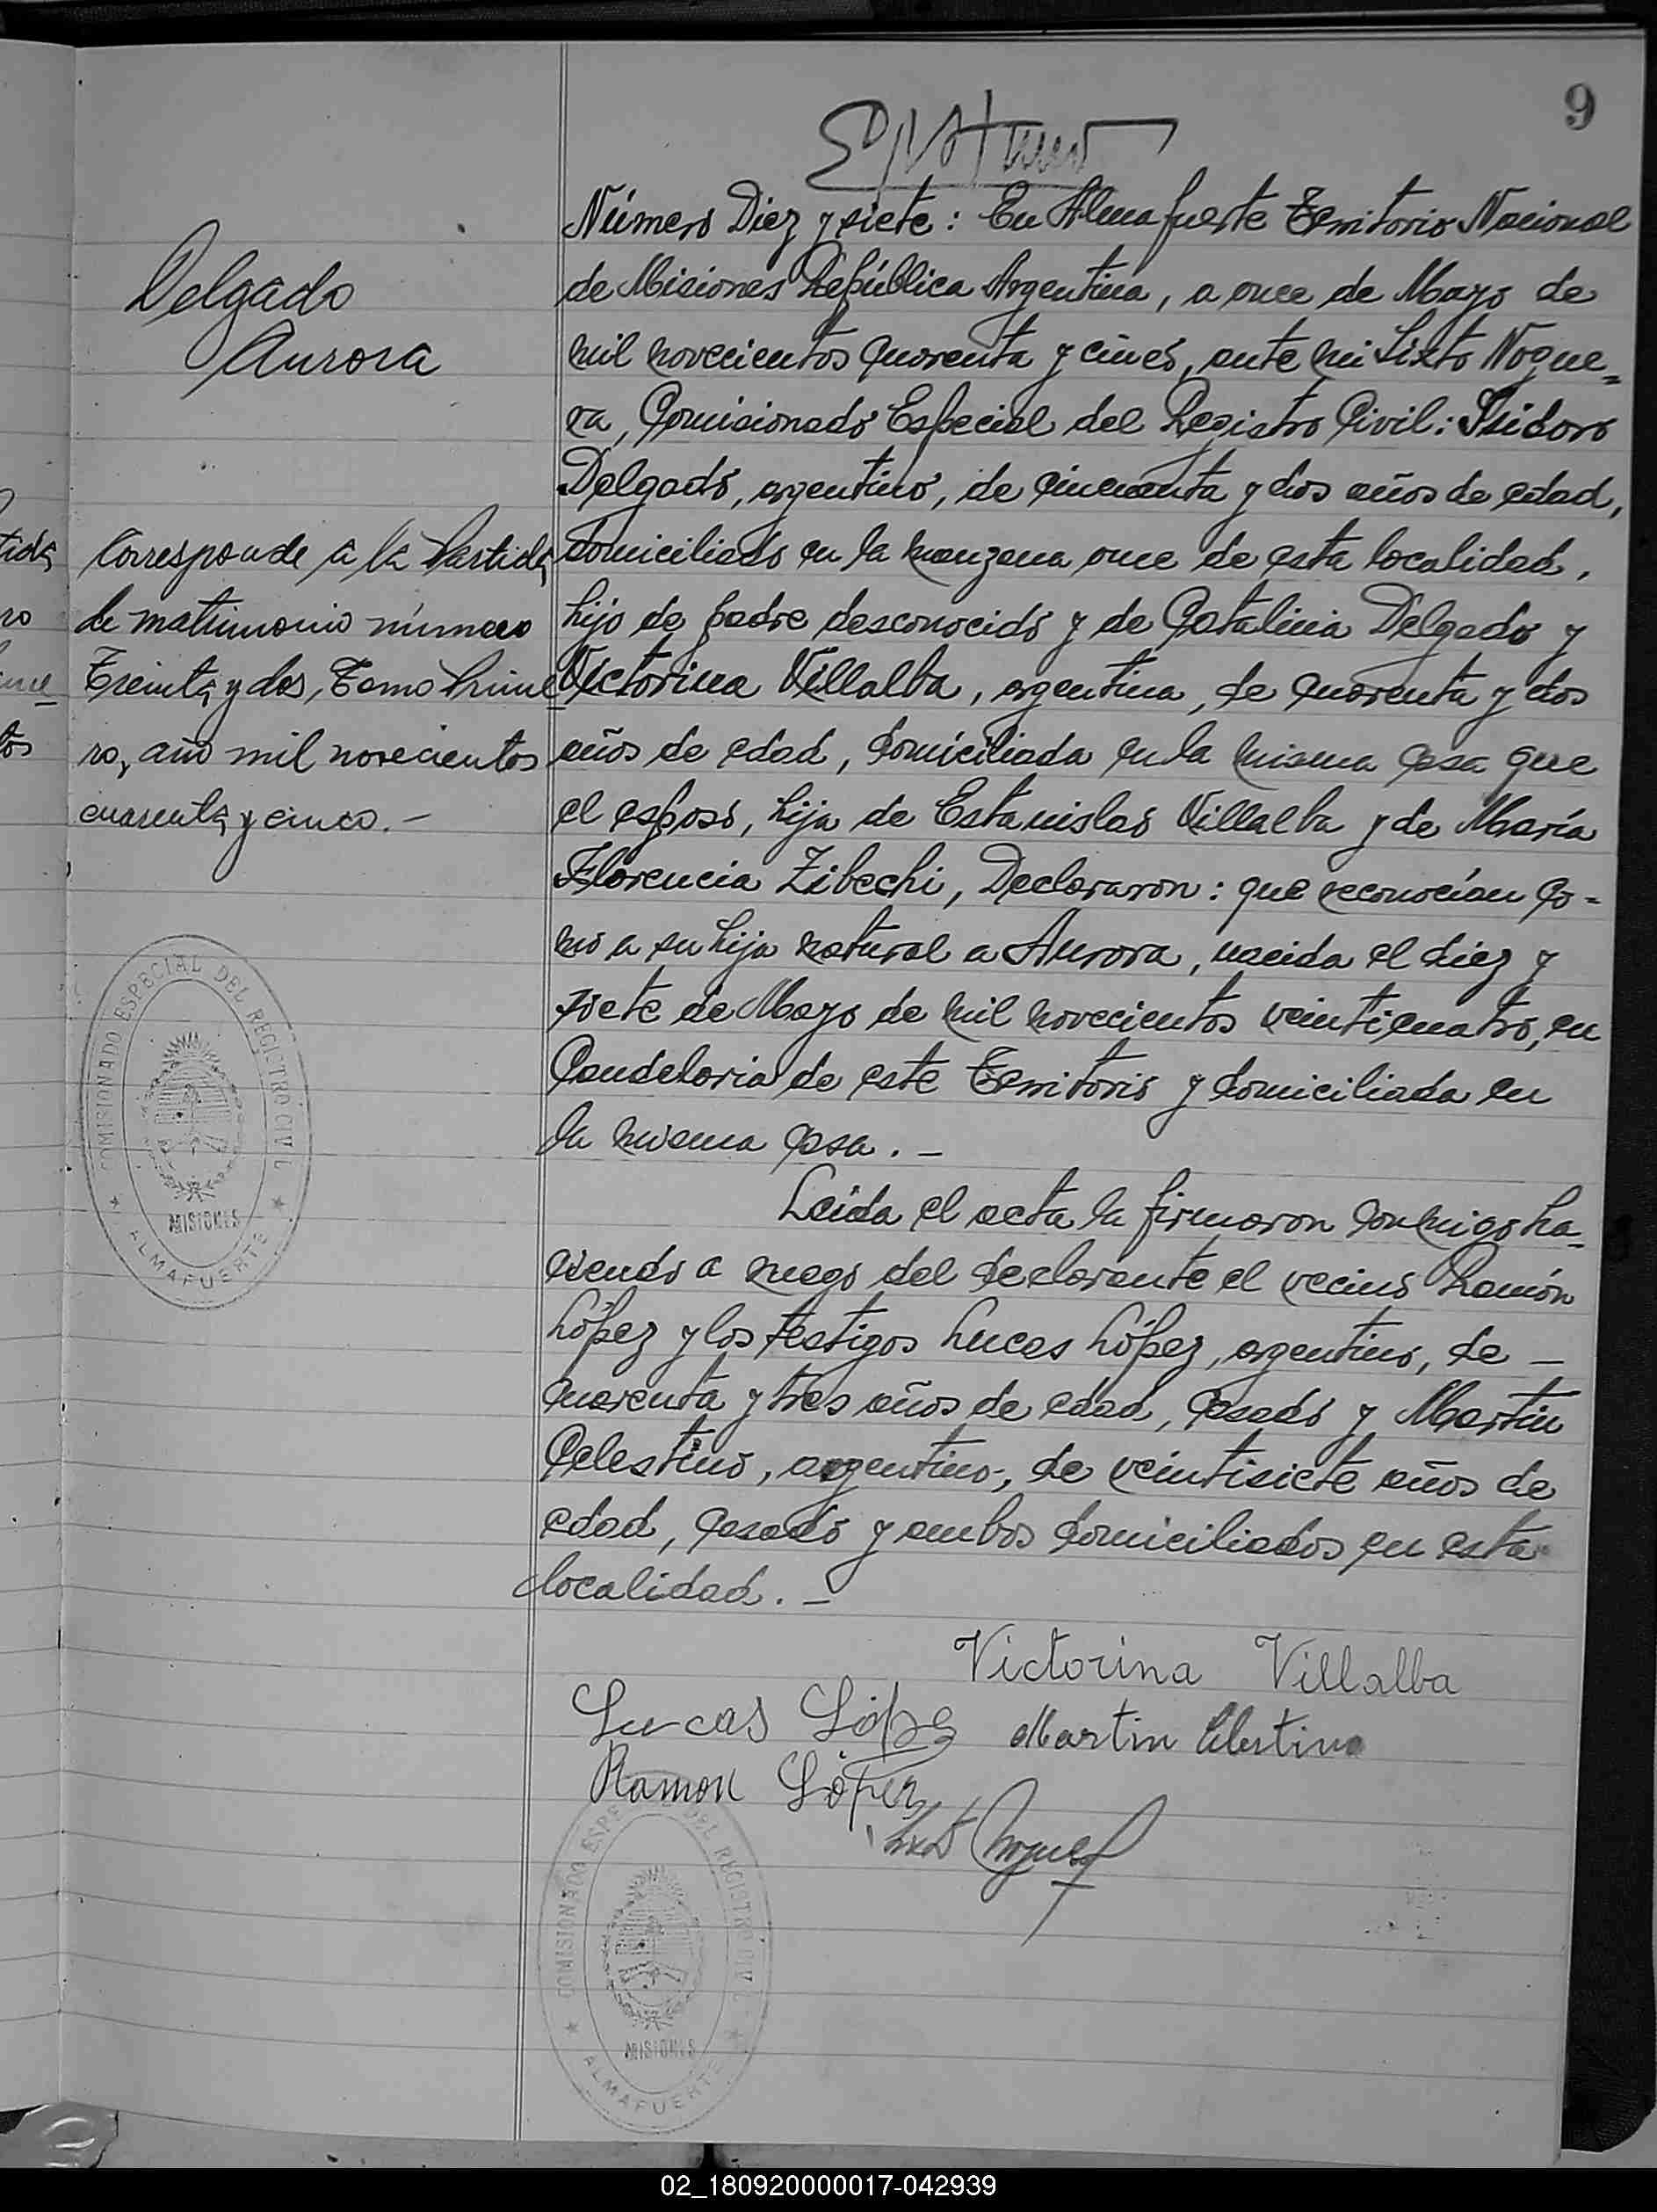 9
Delgado
Aurora
Corresponde a la Partida
de matrimonio número
Treinta y dos, Tomo Prime
ro, año mil novecientos
cuarenta y cinco. -
COMISIONADO ESPECIAL DEL REGISTRO CIVIL
MISIONES
ALMAFUERTE
Número Diez y siete: En Almafuerte Territorio Nacional
de Misiones República Argentina, a once de Mayo de
mil novecientos cuarenta y cinco, ante mi Sixto Nogue=
ra, Comisionado Especial del Registro Civil: Isidoro
Delgado, argentino, de cincuenta y dos años de edad,
domiciliado en la manzana once de esta localidad,
hijo de padre desconocido y de Catalina Delgado y
Victorina Villalba, argentina, de cuarenta y dos
años de edad, domiciliada en la misma casa que
el esposo, hija de Estanislao Villalba y de María
Florencia Zibechi, Declararon: que reconocían co=
mo a su hija natural a Aurora, nacida el diez y
siete de Mayo de mil novecientos veinticuatro, en
Candelaria de este Territorio y domiciliada en
la misma casa. -
Leída el acta la firmaron conmigo ha=
ciendo a ruego del declarante el vecino Ramón
López y los testigos Lucas López, argentino, de -
cuarenta y tres años de edad, casado y Martin
Celestino, argentino, de veintisiete años de
edad, casado y ambos domiciliados en esta
localidad. -
Victorina Villalba
Lucas López Martin Celestino
Ramon López
COMISIONADO ESPECIAL DEL REGISTRO CIVIL
MISIONES
ALMAFUERTE
02_180920000017-042939